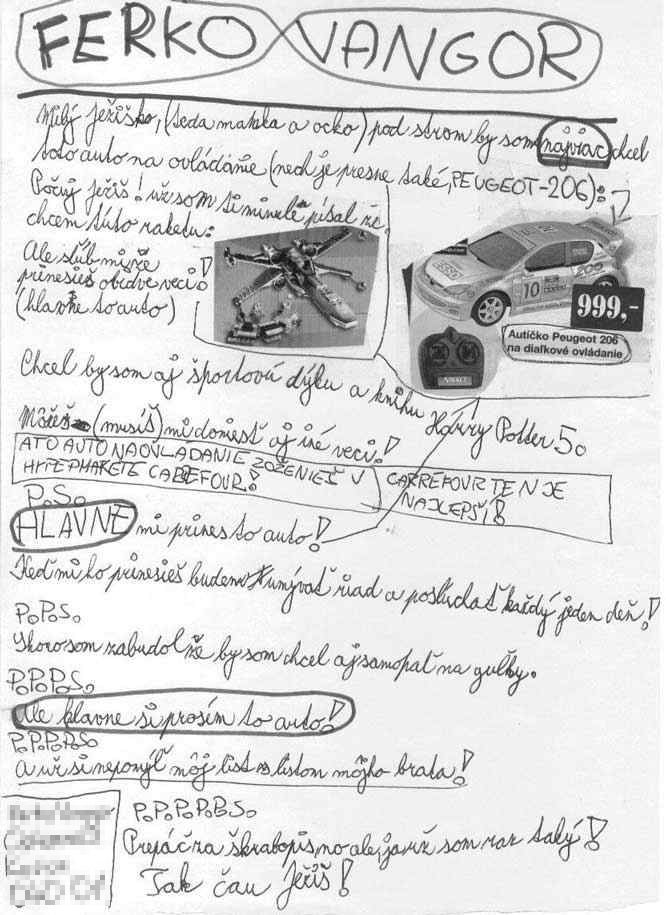 FERKO VANGOR
Milý Ježiško, (teda mamka a ocko) pod strom by som najviac chcel
toto auto na ovládanie (nech je presne také, PEUGEOT-206):
Počuj Ježiš! už som ti minule písal že
chcem túto raketu.
Ale sľúb mi že
prinesieš obidve veci!
(hlavne to auto)
10
206
999,-
Autíčko Peugeot 206
na diaľkové ovládanie
Chcel by som aj športovú dýku a knihu Harry Potter 5.
Môžeš (musíš) mi doniesť aj iné veci!
A TO AUTO NA OVLÁDANIE ZOŽENIEŠ V
HYPEPMARETE CAREFOUR!
CARREFOUR TEN JE
NAJLEPŠÍ!
P.S.
HLAVNE mi prines to auto!
Keď mi ho prinesieš budem umývať riad a poslúchať každý jeden deň!
P.P.S.
Skoro som zabudol že by som chcel aj samopal na guľky.
P.P.P.S.
Ale hlavne si prosím to auto!
P.P.P.P.S.
A už si nepomýľ môj list s listom môjho brata!
P.P.P.P.P.S.
Prepáč za škrabopis, no ale, ja už som raz taký!
Tak čau Ježiš!